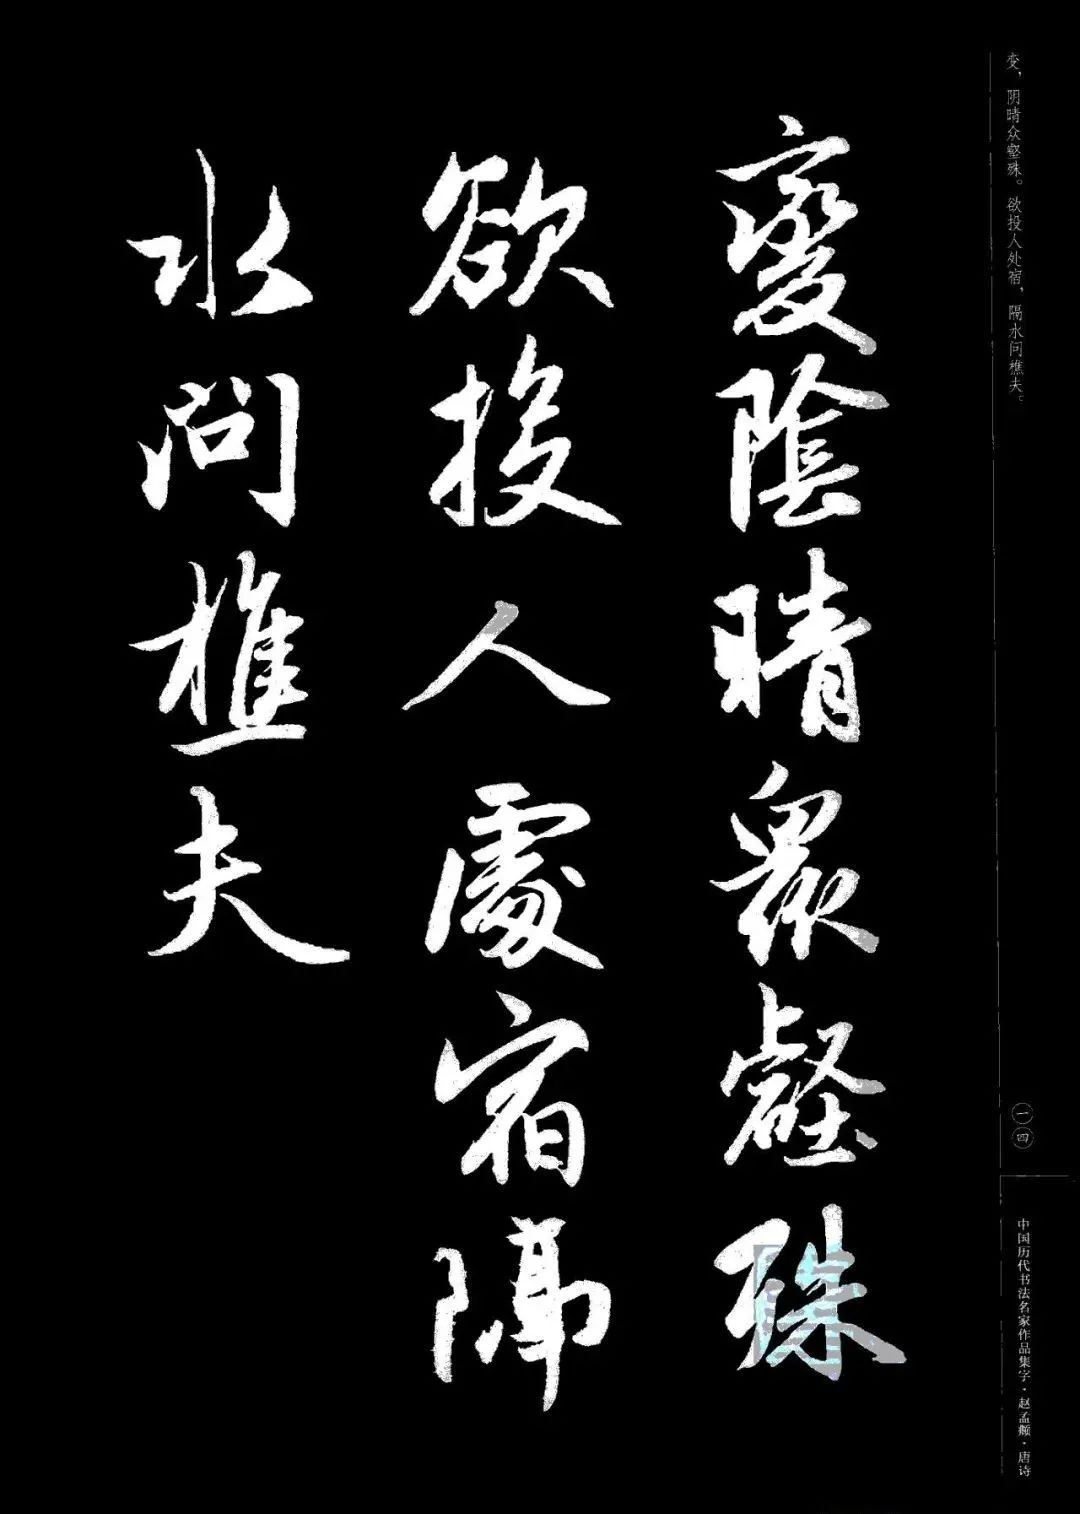 变，阴晴众壑殊。欲投人处宿，隔水问樵夫。
變陰晴眾壑殊
欲投人處宿隔
水問樵夫
一四
中国历代书法名家作品集字·赵孟頫·唐诗